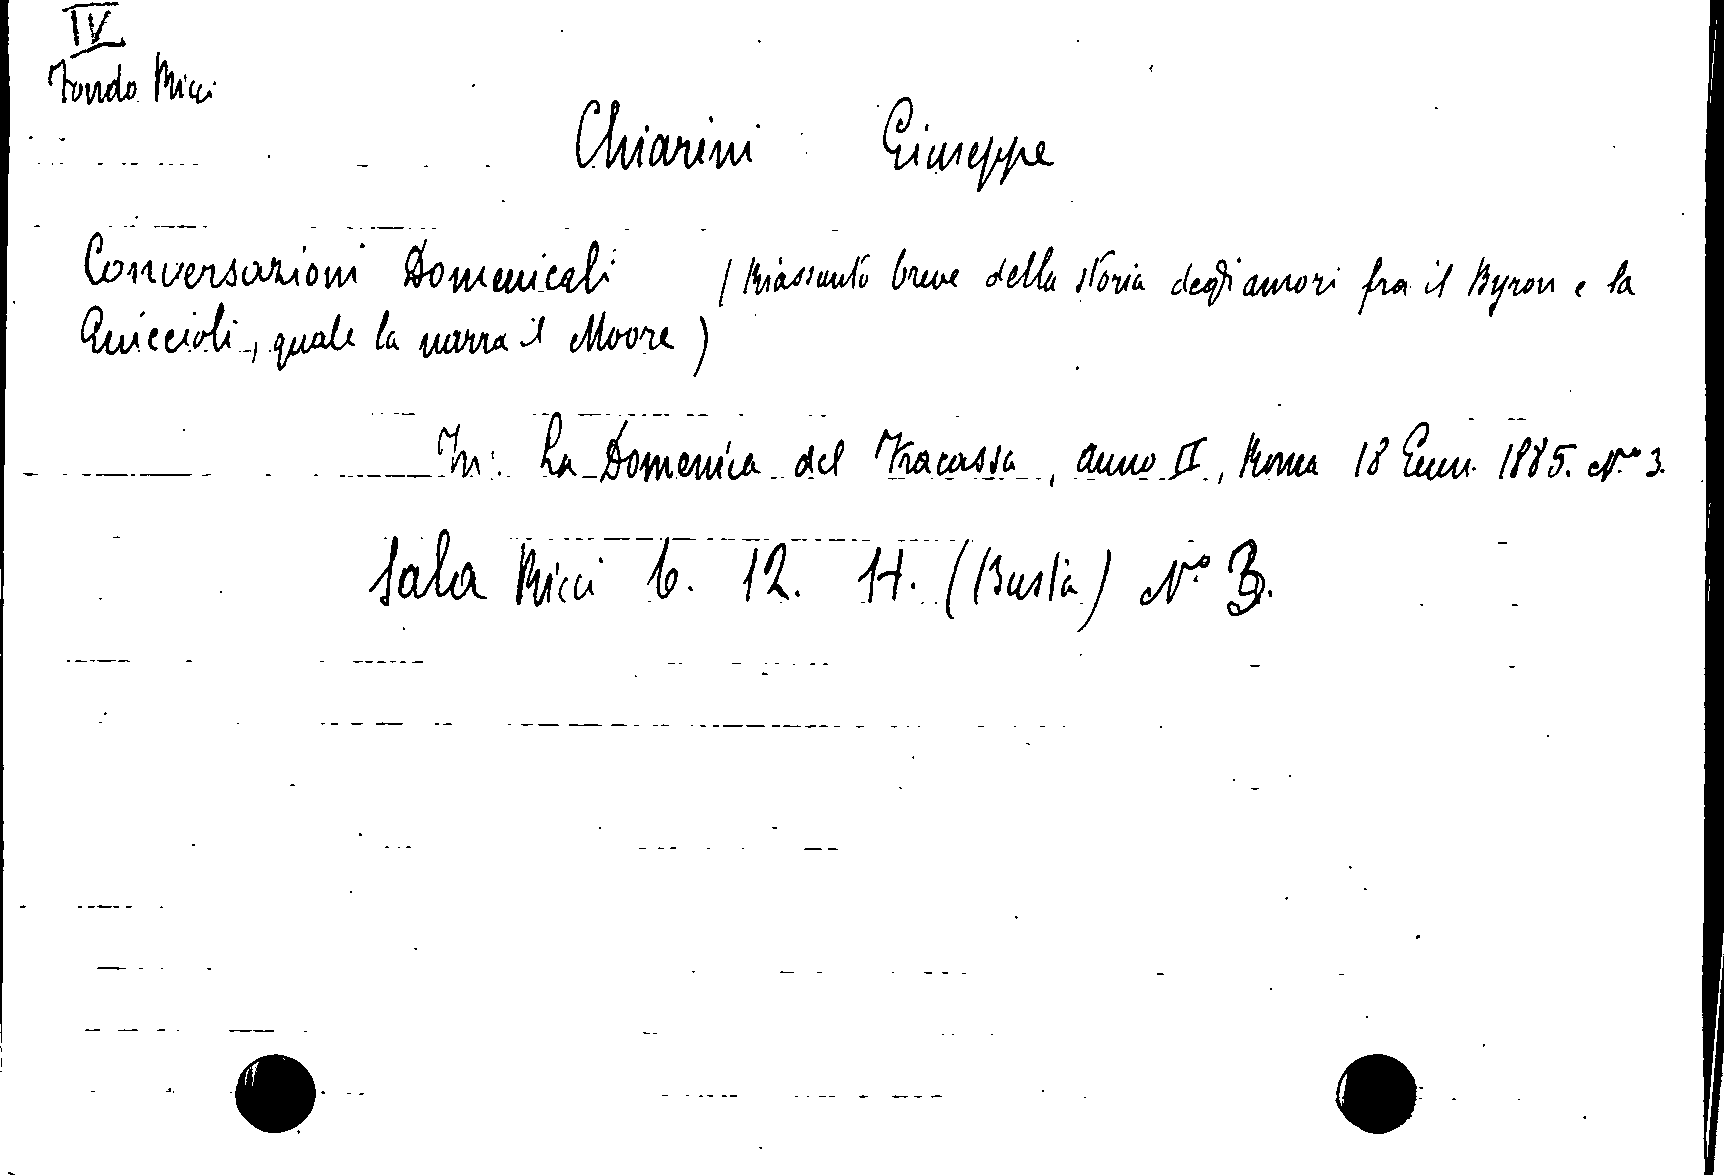 IV
Fondo Ricci
Chiarini Giuseppe
Conversazioni Domenicali (Riassunto breve della storia degli amori fra il Byron e la
Guiccioli, quale la narra il Moore)
In: La Domenica del Fracassa, anno II, Roma 18 Genn. 1885. N.º 3.
Sala Ricci 6. 12. H. (Busta) N.º 3.